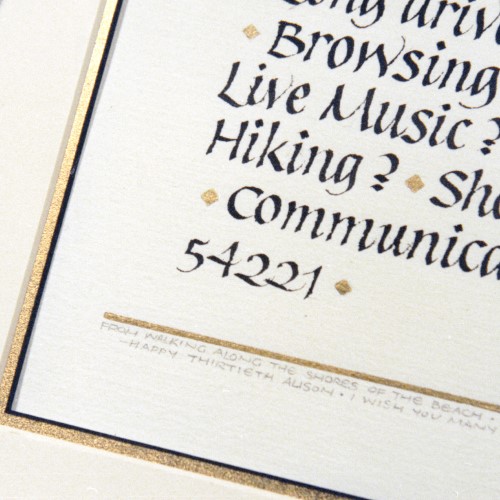 Long drive
Browsing
Live Music?
Hiking? Sho
Communica
54221
FROM WALKING ALONG THE SHORES OF THE BEACH ·
—HAPPY THIRTIETH ALISON · I WISH YOU MANY